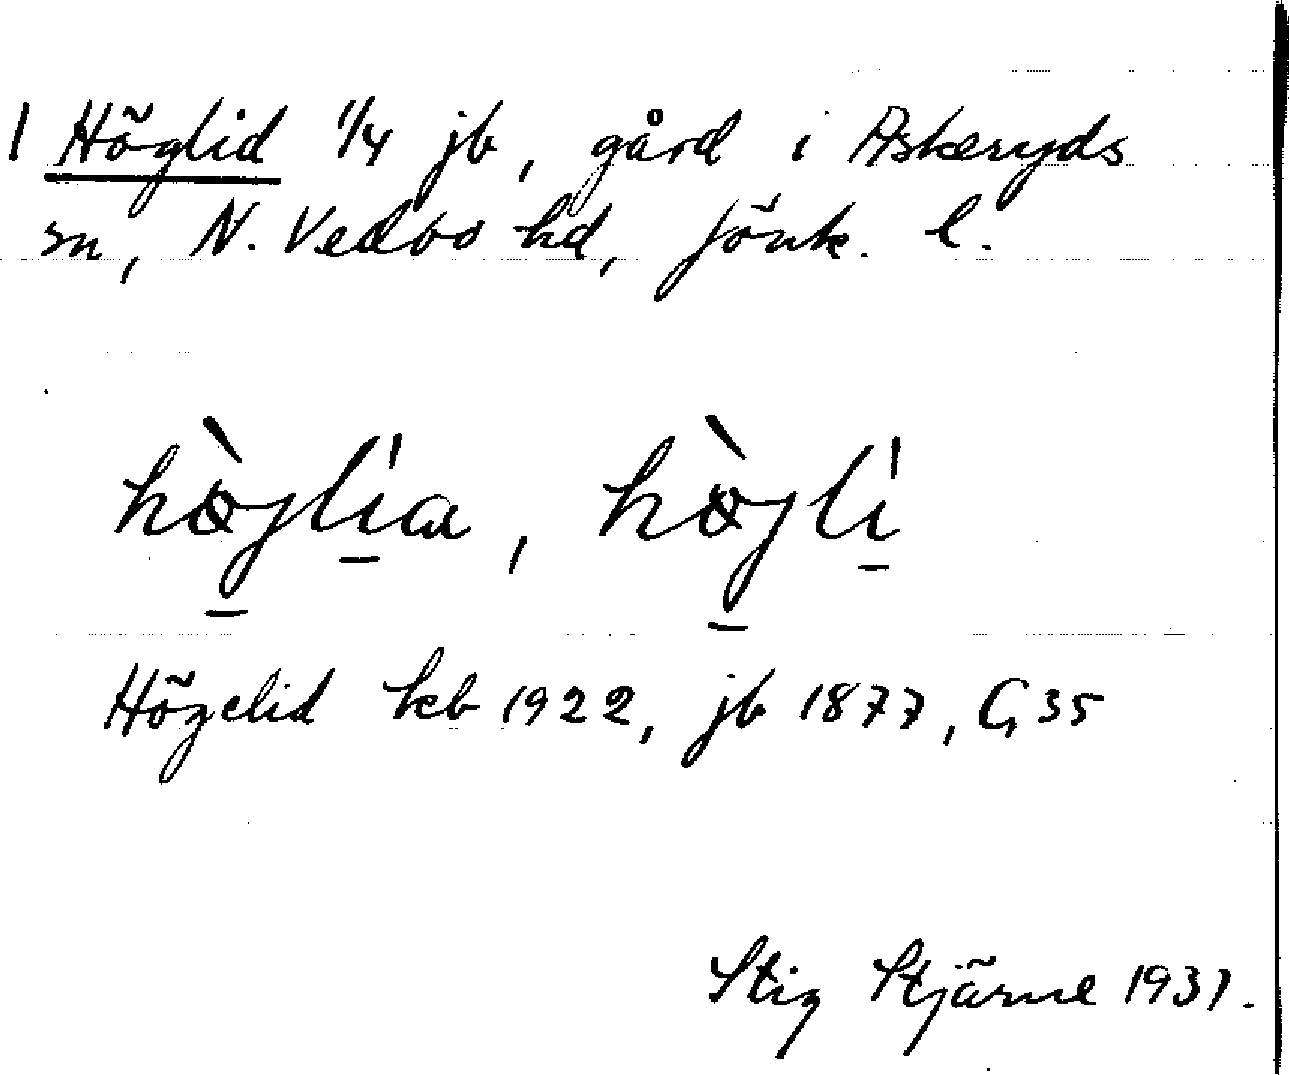 1 Höglid 1/4 jb, gård i Askeryds
sn, N. Vedbo hd, Jönk. l.
hø̀jlı̍a, hø̀jlı̍
Högelid kb 1922, jb 1877, G35
Stig Stjärne 1931.